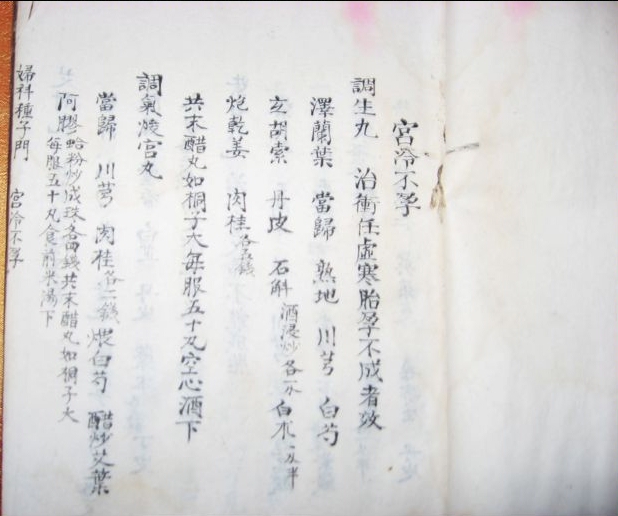 宮冷不孕
調生丸 治衝任虛寒胎孕不成者效
澤蘭葉 當歸 熟地 川芎 白芍
玄胡索 丹皮 石斛 酒浸炒各一水 白朮 一兩半
炮乾姜 肉桂各五錢
共末醋丸如桐子大每服五十丸空心酒下
調氣煖宮丸
當歸 川芎 肉桂各二錢 煨白芍 醋炒艾葉
阿膠 蛤粉炒成珠各四錢共末醋丸如桐子大
每服五十丸食前米湯下
婦科種子門 宮冷不孕